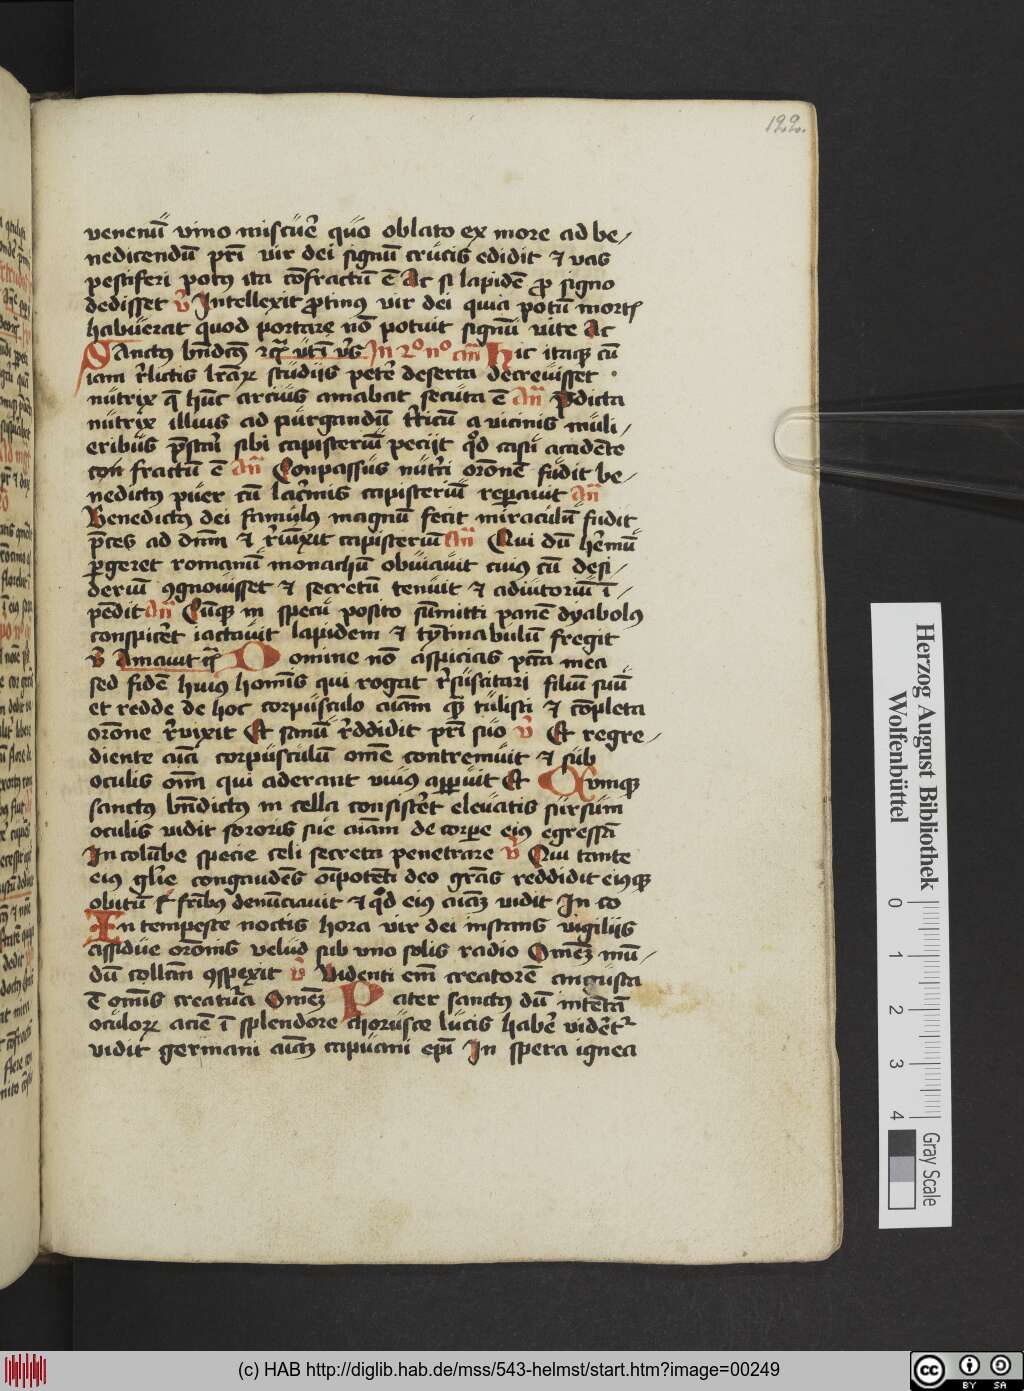 122.
venenū vino miscuēr quo oblato ex more ad be-
nedicendū pr̄i vir dei signū crucis edidit ⁊ vas
pestiferi potꝰ ita cōfractū ē Ac si lapidē ꝓ signo
dedisset v̄ Intellexit ꝓtinꝰ vir dei quia potū mort
habuerat quod portare nō potuit signū vite Ac
Sanctꝰ bn̄dcꝰ In 2º nº an̄ Hic itaqꝫ cū
iam r̄lictis lr̄aꝝ studiis peter̄ deserta decrevisset
nutrix q̄ hūc arcius amabat secuta ē an̄ p̄dicta
nutrix illius ad purgandū tr̄icū a vicinis muli-
eribus p̄stari sibi capisteriū peciit qd̄ casu accidēte
con fractū ē an̄ Conpassus nutrici orōnē fudit be-
nedictꝰ puer cū lacrimis capisteriū reparavit an̄
Benedictꝰ dei famulꝰ magnū fecit miraculū fudit
p̄ces ad dn̄m ⁊ r̄iūxit capisteriū an̄ Qui dū heremū
ꝑgeret romanū monachū obviavit cuiꝰ cū desi-
deriū ꝯgnovisset ⁊ secretū tenuit ⁊ adiutoriū ī-
pēdit an̄ Cūqꝫ in specu posito sūmitti panē dyabolꝰ
conspicēt iactavit lapidem ⁊ tȳtinabulum fregit
v̄ Amavit Domine nō aspicias pctā mea
sed fidē huiꝰ homīs qui rogat r̄suscitari filiū suū
et redde de hoc corpusculo aīam quā tulisti ⁊ cōpleta
orōne r̄vixit Et sanū r̄ddidit pr̄i suo v̄ Et regre-
diente aīa corpusculū om̄e contremuit ⁊ sub
oculis om̄ qui aderant vivꝰ apparuit Et Cumqꝫ
sanctꝰ bn̄dictꝰ in cella consistēt elevatis sursum
oculis vidit sororis sue aīam de corpe eiꝰ egressā
In colūbe specie celi secreta penetrare v̄ Qui tante
eiꝰ glīe congaudēs oīpotēti deo grās reddidit eiusqꝫ
obitū fribꝰ denūciavit ⁊ qd̄ eiꝰ aīaꝫ vidit In co
In tempeste noctis hora vir dei instans vigiliis
assidue orōnis velud sub uno solis radio Omēꝫ mū-
dū collcm̄ ꝯspexit v̄ Videnti em̄ creatorē angusta
ē omīs creatura Omēꝫ Pater sanctꝰ dū intētā
oculoꝝ aciē ī splendore chorusce lucis haber̄ vidētr
vidit germani aīaꝫ capuani ep̄i In spera ignea
Herzog August Bibliothek
Wolfenbüttel
0 1 2 3 4
Gray Scale
(c) HAB http://diglib.hab.de/mss/543-helmst/start.htm?image=00249
cc BY SA